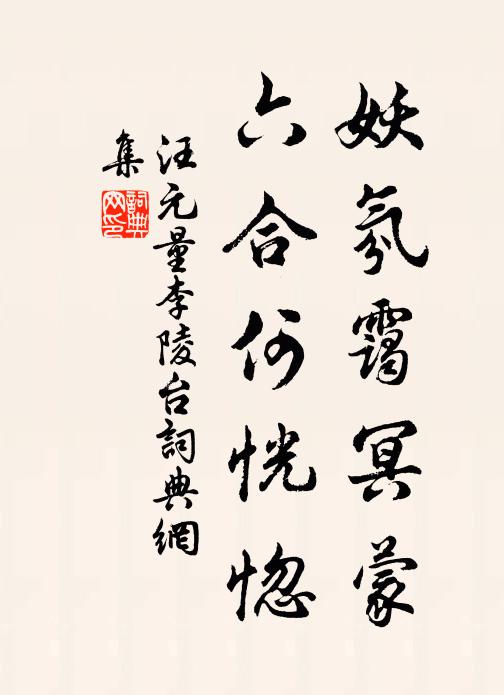 妖氛霭冥蒙
六合何恍惚
汪元量李陵台詞典網
集
詞典
网印